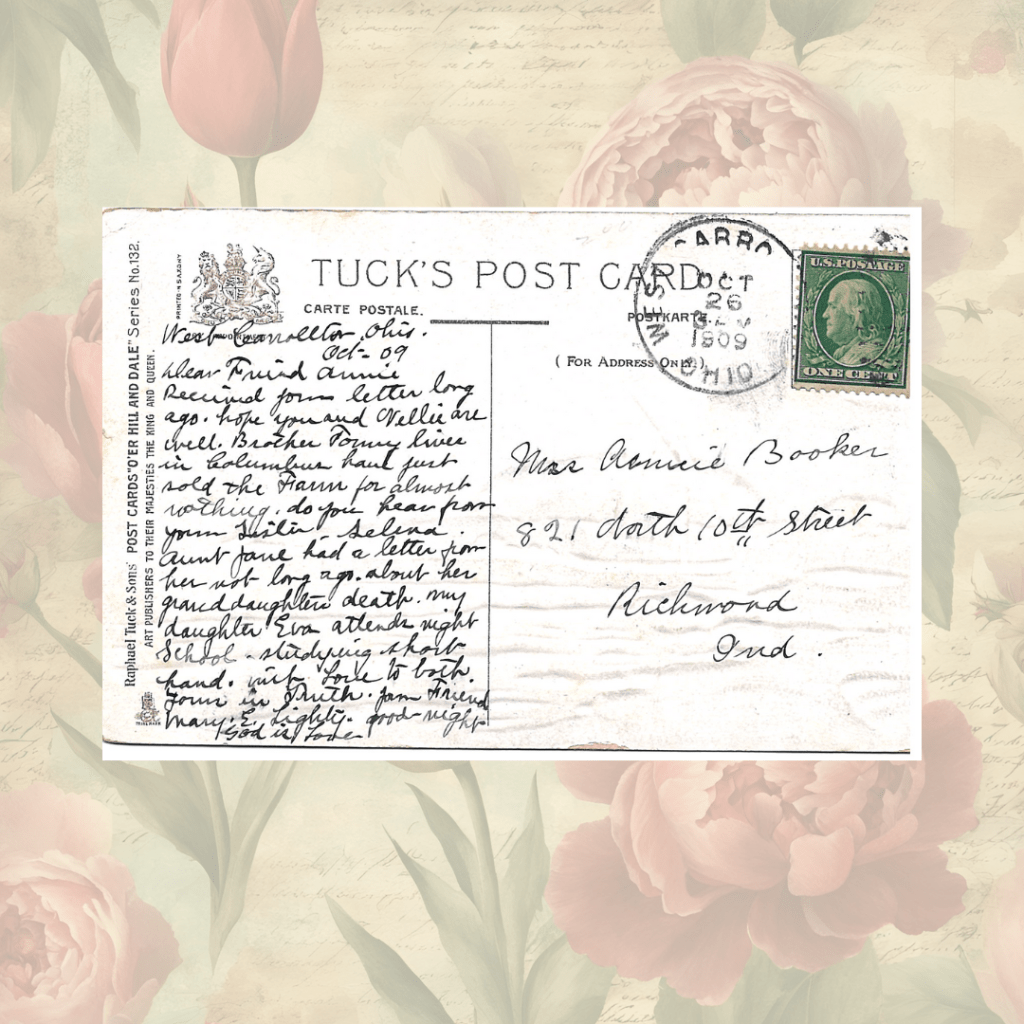 Raphael Tuck & Sons' POST CARDS "O'ER HILL AND DALE" Series No. 132.
ART PUBLISHERS TO THEIR MAJESTIES THE KING AND QUEEN.
PRINTED IN SAXONY
TUCK'S POST CARD
CARTE POSTALE.
POSTKARTE.
( FOR ADDRESS ONLY.)
West Carrollton, Ohio.
Oct- 09
Dear Friend Annie
Received your letter long
ago. hope you and Nellie are
well. Brother Tommy lives
in Columbus have just
sold the Farm for almost
nothing. do you hear from
your Sister - Selena.
Aunt Jane had a letter from
her not long ago. about her
granddaughters death. my
daughter Eva attends night
School - studying short
hand. with Love to both.
Your in Truth. your Friend
Mary. E. Lighty. good night
God is Love
WEST CARRO
OCT
26
1909
OHIO
U.S. POSTAGE
ONE CENT
Mrs Annie Booker
821 North 10th Street
Richmond
Ind.